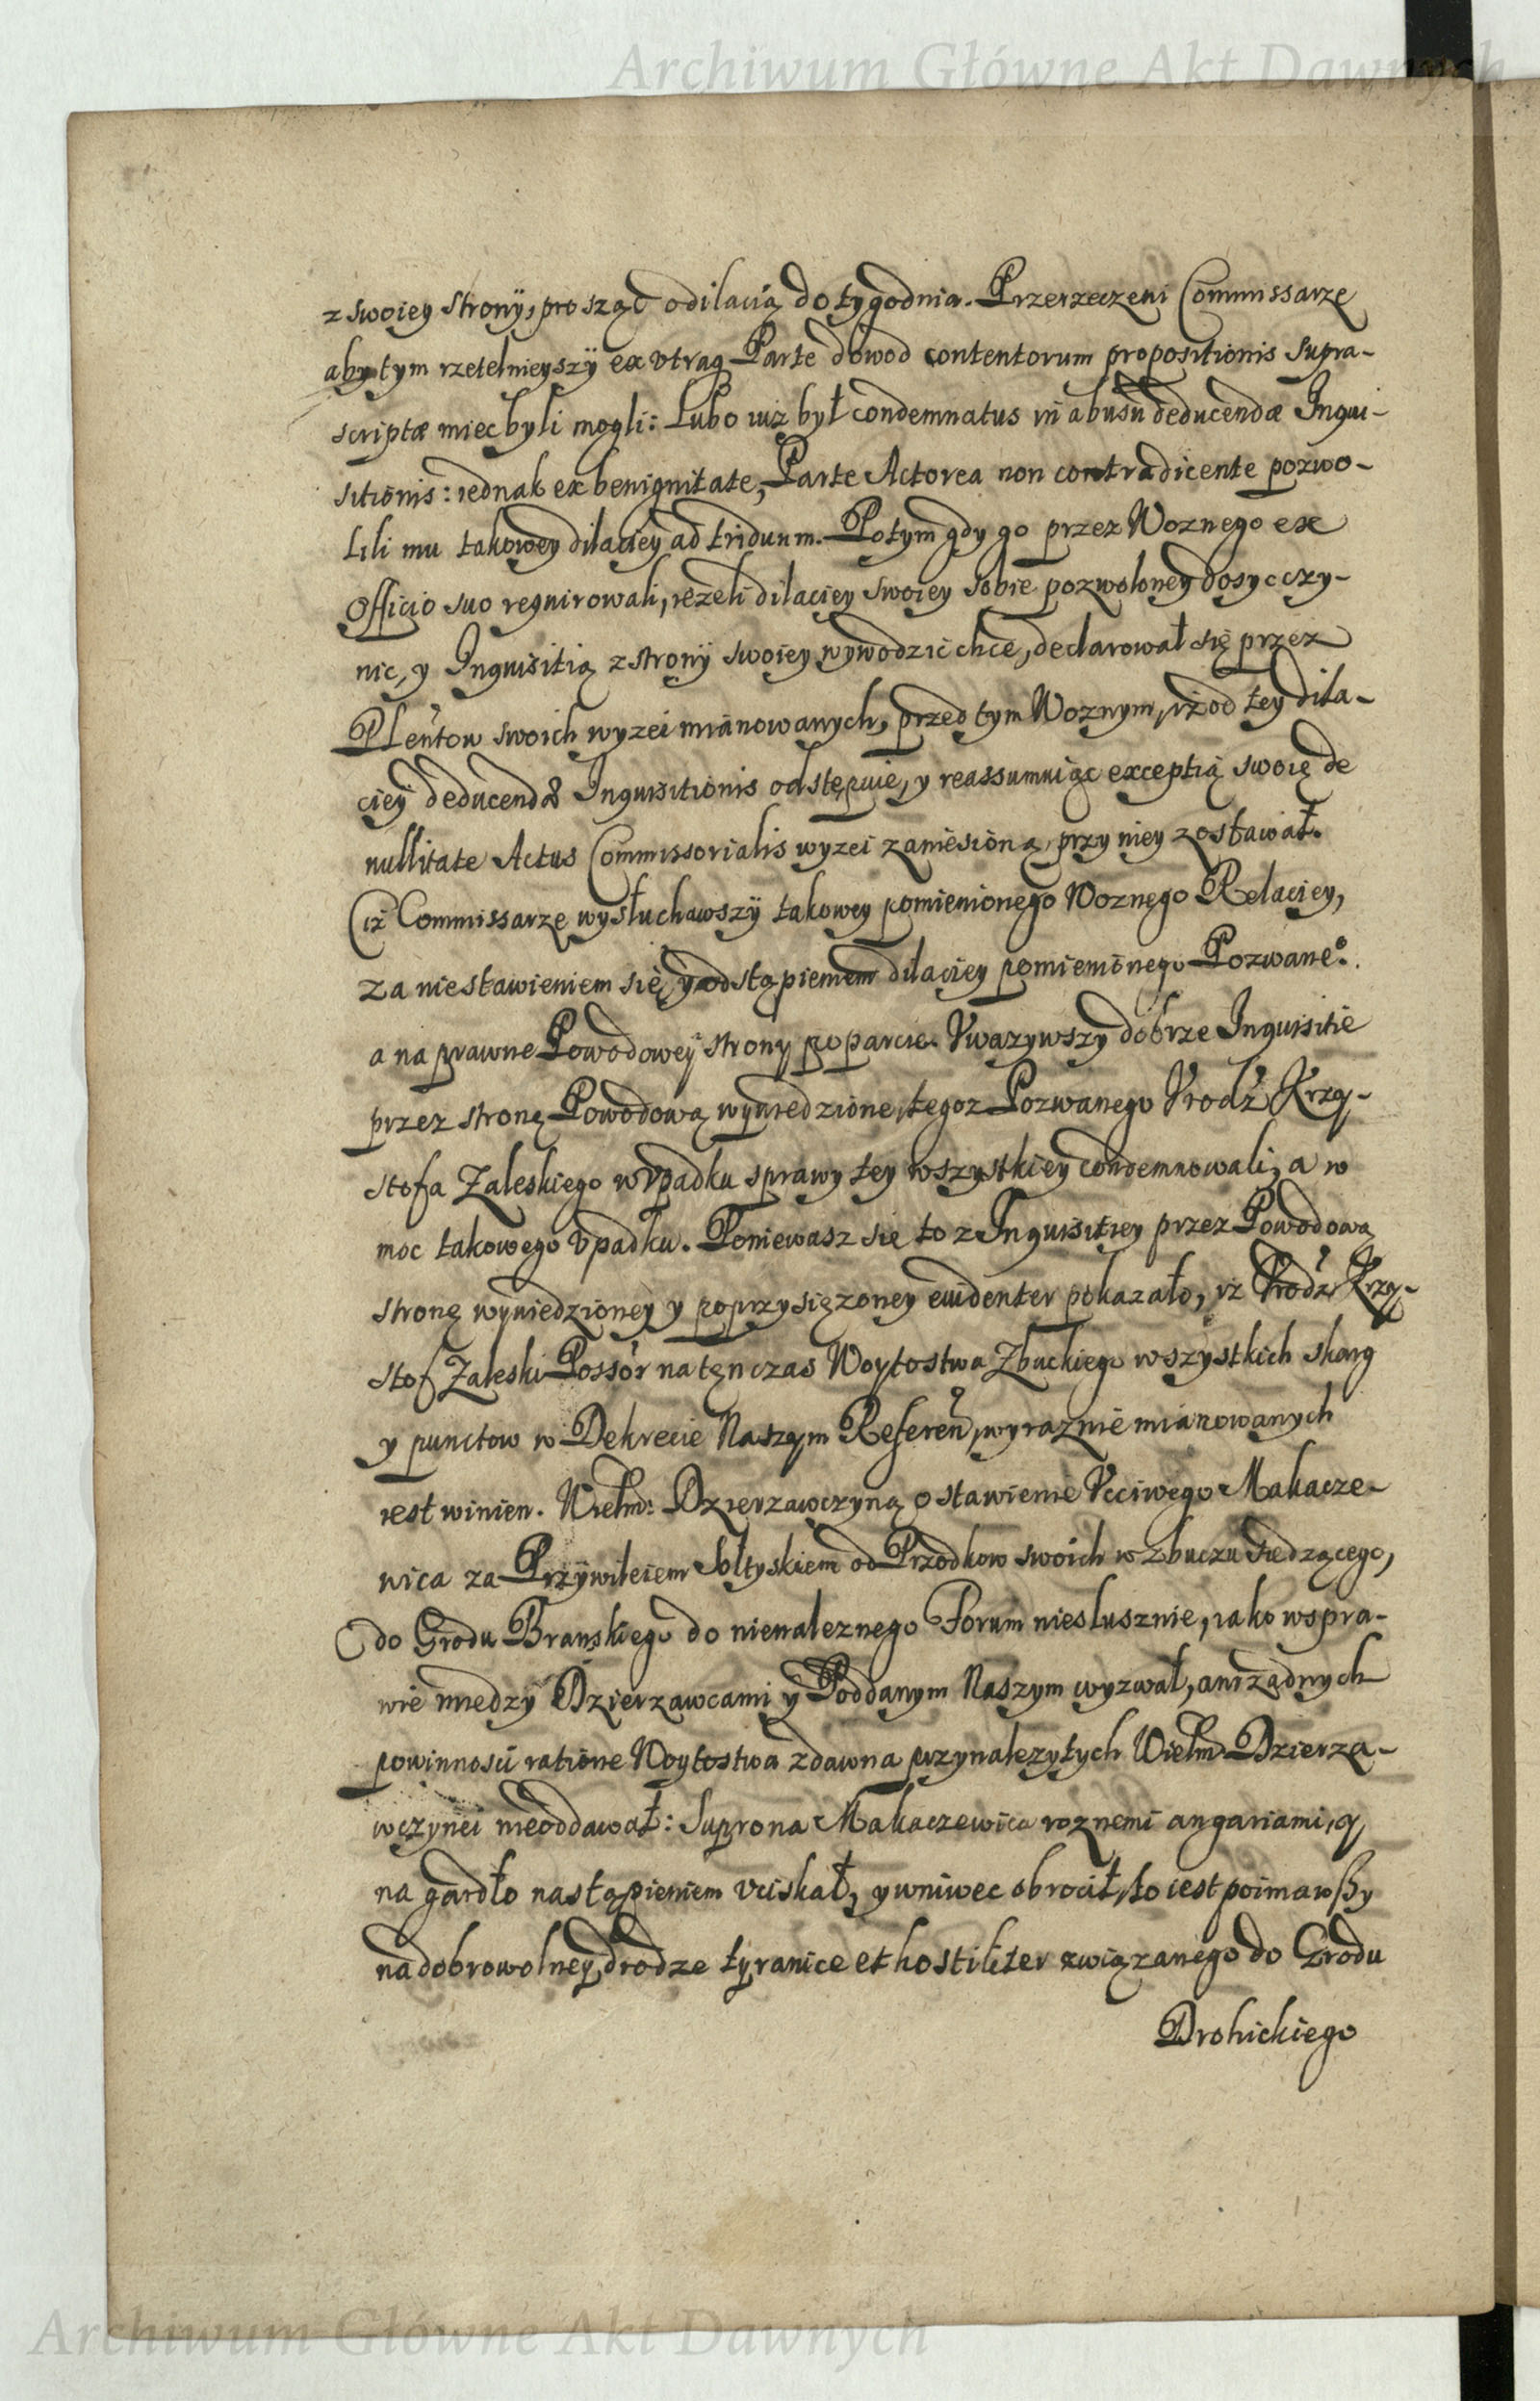 Archiwum Główne Akt Dawnych
z swoiey strony, prosząc o dilacią do tygodnia. Przerzeczeni Commissarze
aby tym rzetelnieyszÿ ex vtraq Parte dowod contentorum propositionis supra-
scriptæ miec byli mogli: Lubo iuż był condemnatus in abusu deducendæ Inqui-
sitionis: iednak ex benignitate, Parte Actorea non contradicente pozwo-
lili mu takowey dilaciey ad triduum. Potym gdy go przez Woznego ex
Officio suo requirowali, ieżeli dilaciey swoiey sobie pozwoloney dosyc czy-
nic, y Inquisitią z strony swoiey wywodzić chce, declarował się przez
Plentow swoich wyzei mianowanych, przed tym Woznym, iż od tey dila-
ciey deducendæ Inquisitionis odstępuie, y reassumuiąc exceptią swoię de
nullitate Actus Commissorialis wyzei zaniesioną, przy niey zostawał.
Ciż Commissarze wysłuchawszÿ takowey pomienionego Woznego Relaciey,
za niestawieniem się, y odstąpieniem dilaciey pomienionego Pozwane.
a na prawne Powodowey strony poparcie. Vwazywszy dobrze Inquisitie
przez stronę Powodową wywiedzione, tegoz Pozwanego Vrodź Krzy-
stofa Zaleskiego w vpadku sprawy tey wszystkiey condemnowali, a w
moc takowego vpadku. Poniewasz się to z Inquisitiey przez Powodową
stronę wywiedzioney y poprzysięzoney euidenter pokazało, iz Vrodź Krzy-
stof Zaleski Possór na tęn czas Woytostwa Zbuckiego wszystkich skarg
y punctow w Dekrecie Naszym Referen, wyraznie mianowanych
iest winien. Wielm: Dzierzawczyną o stawienie Vcciwego Makacze-
wica za Przÿwileiem Sołtyskiem od Przodkow swoich w Zbuczu siedzącego,
do Grodu Branskiego do nienaleznego Forum nieslusznie, iako w spra-
wie miedzy Dzierzawcami y Poddanym Naszym wyzwał, ani żądnych
powinnosci ratione Woytostwa zdawna przynalezytych Wielm: Dzierza-
wczynei nieoddawał: Suprona Makaczewica roznemi angariami, y
na gardło nastąpieniem vciskał, y wniwec obrocił, to iest poimawszy
na dobrowolney drodze tyranice et hostiliter związanego do Grodu
Drohickiego
Archiwum Główne Akt Dawnych